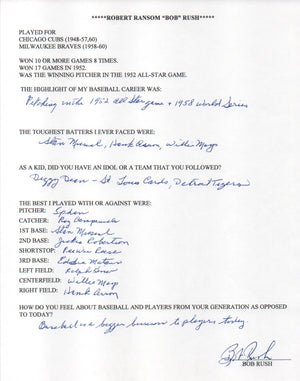 *****ROBERT RANSOM "BOB" RUSH*****
PLAYED FOR
CHICAGO CUBS (1948-57,60)
MILWAUKEE BRAVES (1958-60)
WON 10 OR MORE GAMES 8 TIMES.
WON 17 GAMES IN 1952.
WAS THE WINNING PITCHER IN THE 1952 ALL-STAR GAME.
THE HIGHLIGHT OF MY BASEBALL CAREER WAS:
Pitching in the 1952 all Star game + 1958 World Series
THE TOUGHEST BATTERS I EVER FACED WERE:
Stan Musial, Hank Aaron, Willie Mays
AS A KID, DID YOU HAVE AN IDOL OR A TEAM THAT YOU FOLLOWED?
Dizzy Dean - St Louis Cards, Detroit Tigers
THE BEST I PLAYED WITH OR AGAINST WERE:
PITCHER: Spahn
CATCHER: Roy Campanella
1ST BASE: Stan Musial
2ND BASE: Jackie Robertson
SHORTSTOP: Peewee Reese
3RD BASE: Eddie Mathews
LEFT FIELD: Ralph Kiner
CENTERFIELD: Willie Mays
RIGHT FIELD: Hank Aaron
HOW DO YOU FEEL ABOUT BASEBALL AND PLAYERS FROM YOUR GENERATION AS OPPOSED
TO TODAY?
Baseball is a bigger business to players today
Bob Rush
BOB RUSH